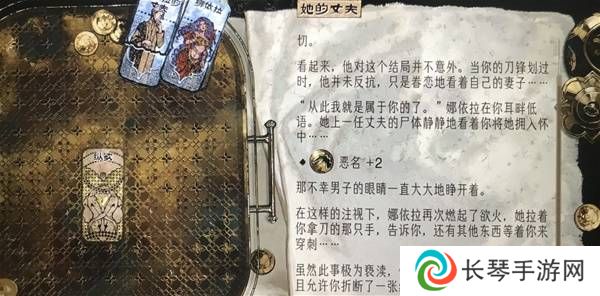 她的丈夫
娜依拉
纵欲
切。
看起来，他对这个结局并不意外。当你的刀锋划过
时，他并未反抗，只是眷恋地看着自己的妻子……
“从此我就是属于你的了。”娜依拉在你耳畔低
语。她上一任丈夫的尸体静静地看着你将她拥入怀
中……
恶名 +2
那不幸男子的眼睛一直大大地睁开着。
在这样的注视下，娜依拉再次燃起了欲火，她拉着
你拿刀的那只手，告诉你，还有其他东西等着你来
穿刺……
虽然此事极为亵渎，
且允许你折断了一张
长琴手游网